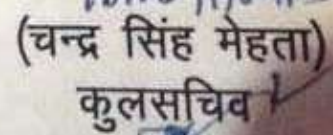 (चन्द्र सिंह मेहता)
कुलसचिव